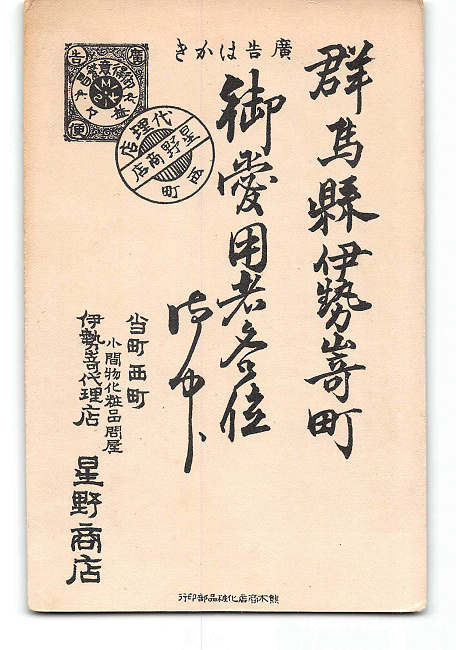 廣告はがき
群馬縣伊勢崎町
御愛用者各位
御中
当町西町
小間物化粧品問屋
伊勢崎代理店
星野商店
廣告
便
代理店
星野商店
西町